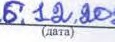 6.12.20
(дата)